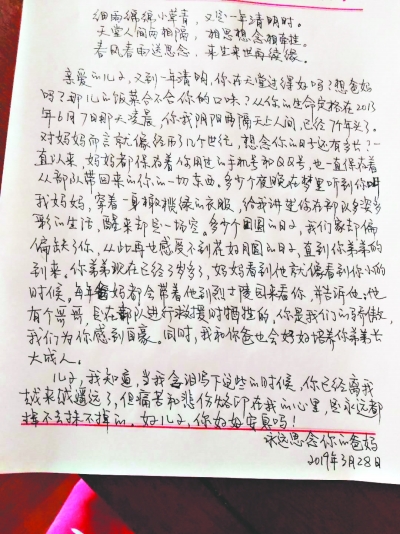 细雨绵绵小草青，又是一年清明时。
天堂人间两相隔，相思想念相牵挂。
春风春雨送思念，来生来世再续缘。
亲爱的儿子，又到一年清明，你在天堂过得好吗？想爸妈
吗？那儿的饭菜合不合你的口味？从你的生命定格在2013
年6月7日那天凌晨，你我阴阳两隔天上人间，已经7个年头了。
对妈妈而言就像经历了几个世纪，想念你的日子还有多长？一
直以来，妈妈都保存着你用过的手机号和QQ号，也一直保存着
从部队带回来的你的一切东西。多少个夜晚在梦里听到你叫
我妈妈，穿着一身橄榄绿的衣服，给我讲您你在部队多姿多
彩的生活，醒来却是一场空。多少个团圆的日子，我们家却偏
偏缺了你，从此再也感受不到花好月圆的日子，直到你弟弟的
到来。你弟弟现在已经3岁多了，妈妈看到他就像看到你小的
时候，每年爸妈都会带着他到烈士陵园来看你，并告诉他：他
有个哥哥，是在部队进行救援时牺牲的，你是我们的骄傲，
我们为你感到自豪。同时，我和你爸也会好好培养你弟弟长
大成人。
儿子，我知道，当我含泪写下这些的时候，你已经离我
越来越遥远了，但痛苦和悲伤烙印在我的心里，是永远都
掉不去抹不掉的。好儿子，你好好安息吧！
永远思念你的爸妈
2019年3月28日